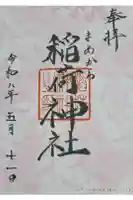 奉拝
きめがわ
稲荷神社
令和八年五月十一日